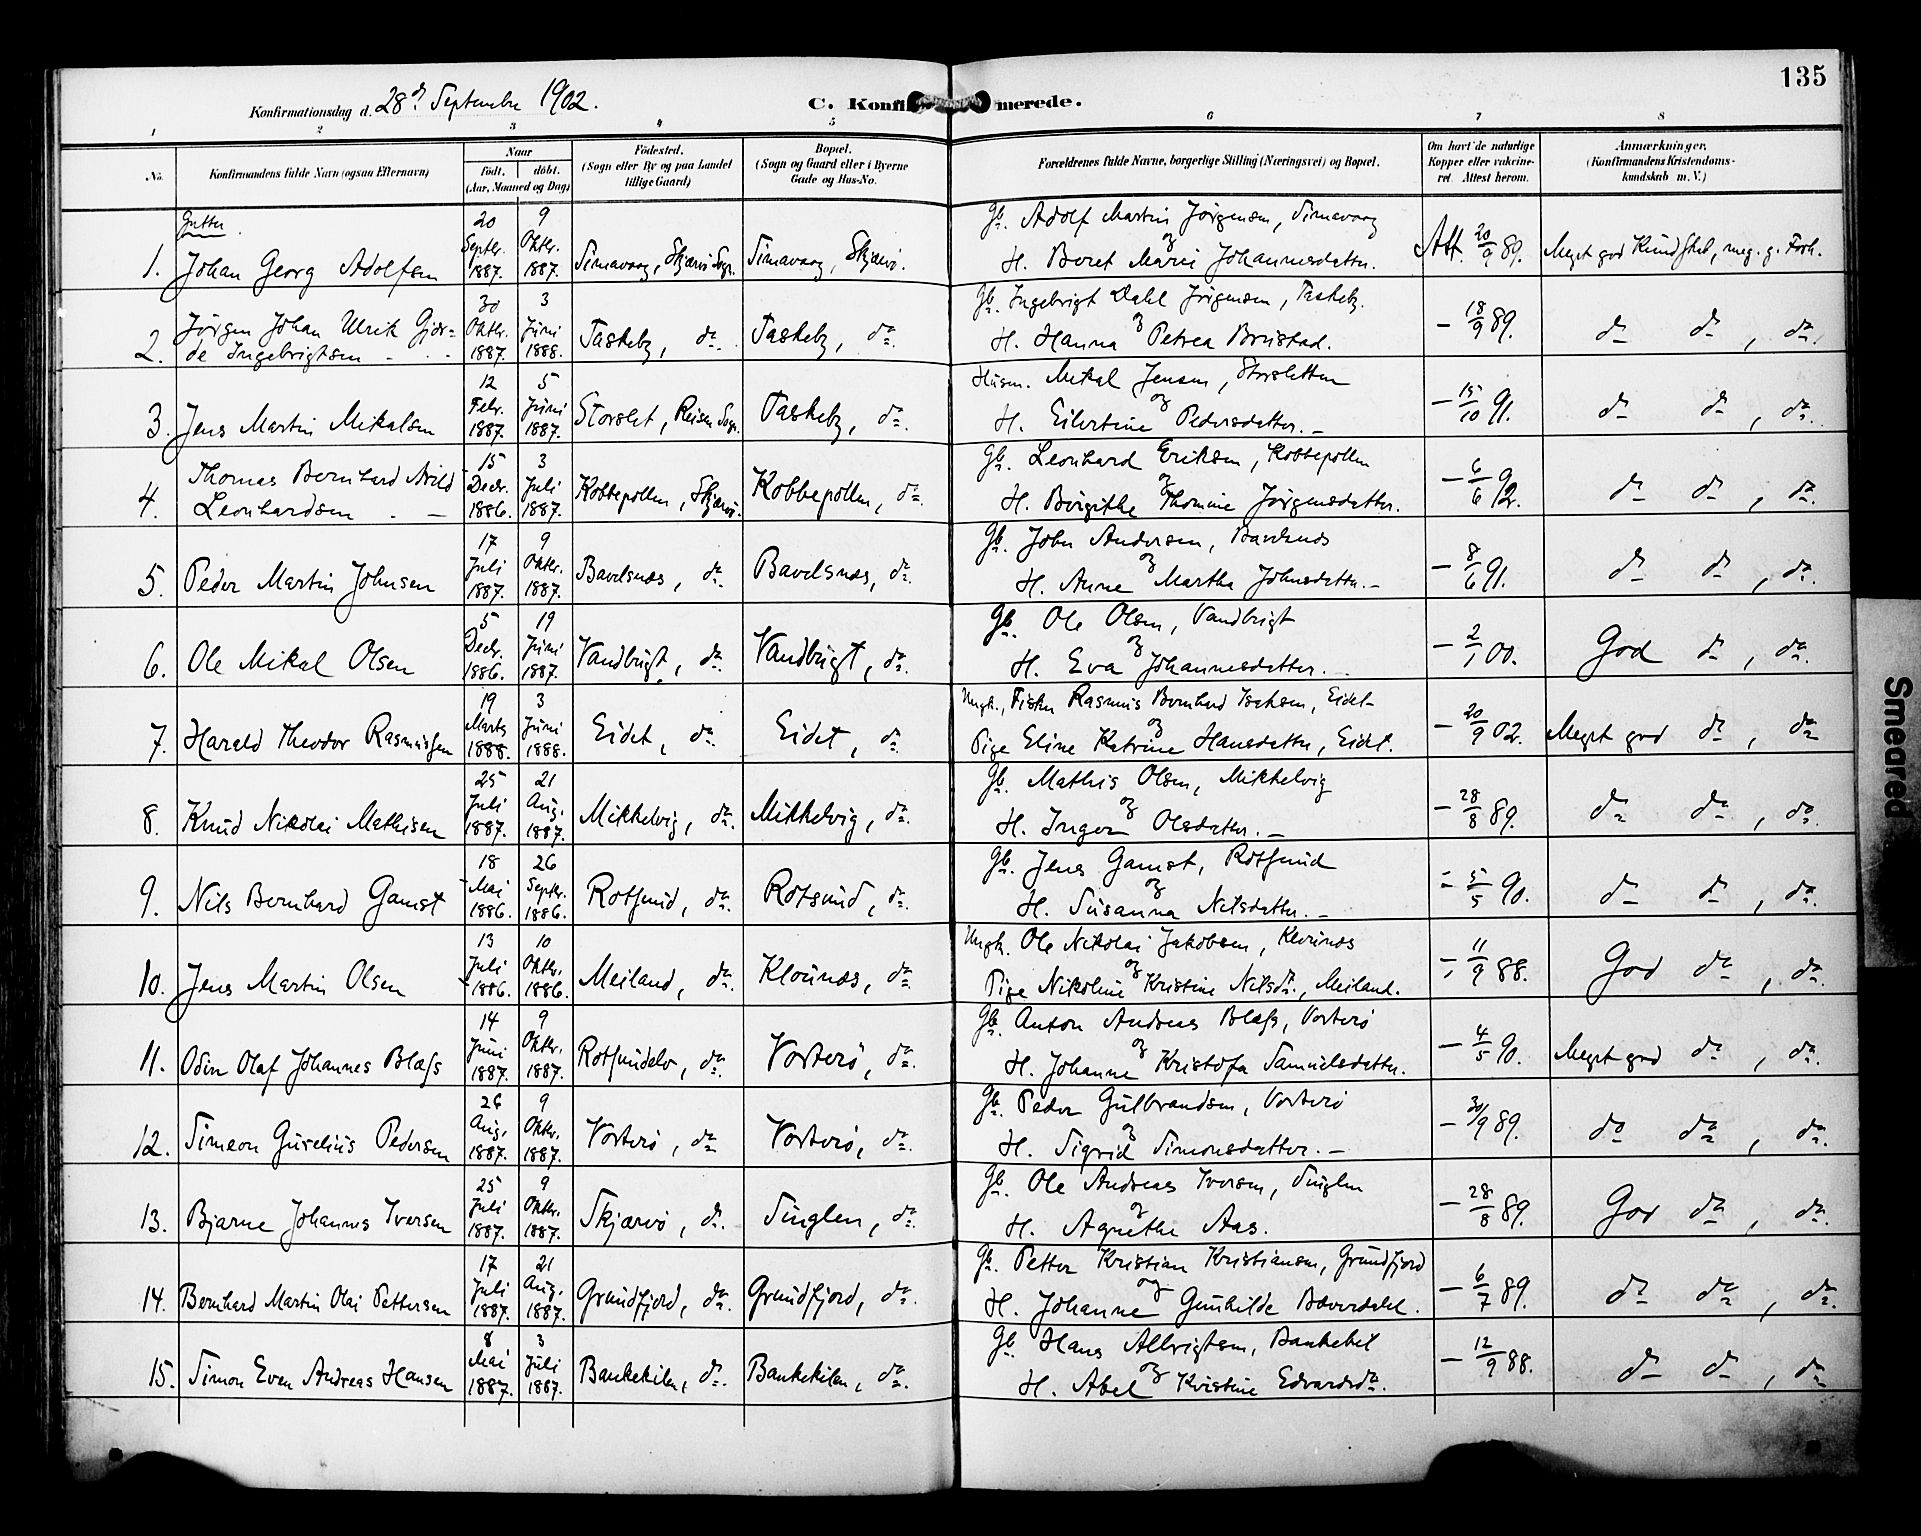 135
Konfirmationsdag d. 28de September 1902.
C. Konfirmerede.
1 2 3 4 5 6 7 8
No. Konfirmandens fulde Navn (ogsaa Efternavn) Naar født. døbt. (Aar, Maaned og Dag) Fødested. (Sogn eller By og paa Landet tillige Gaard) Bopæl. (Sogn og Gaard eller i Byerne Gade og Hus-No. Forældrenes fulde Navne, borgerlige Stilling (Næringsvei) og Bopæl. Om havt de naturlige Kopper eller vakcineret. Attest herom. Anmærkninger. (Konfirmandens Kristendomskundskab m. V.)
Gutter.
1. Johan Georg Adolfsen 20 Septbr. 1887. 9 Oktbr. 1887. Simavaag, Skjærvø Sogn. Simavaag, Skjærvø. Gb. Adolf Martin Jørgensen, Simavaag
og
H. Beret Marie Johannesdatter. Att. 20/9 89. Meget god Kundskab, meg. g. Forh.
2. Jørgen Johan Ulrik Gjær-
de Ingebrigtsen 30 Oktbr. 1887. 3 Juni 1888. Taskeby, do. Taskeby, do. Gb. Ingebrigt Dahl Jørgensen, Taskeby.
og
H. Hanna Petrea Brustad. - 18/9 89. do do, do.
3. Jens Martin Mikalsen 12 Febr. 1887. 5 Juni 1887. Storslet, Reisen Sogn. Taskeby, do. Husm. Mikal Jensen, Storsletten
og
H. Eilertine Pedersdatter. - 15/10 91. do do, do.
4. Thomas Bernhard Arild
Leonhardsen 15 Decbr. 1886. 3 Juli 1887. Kobbepollen, Skjærvø. Kobbepollen, do. Gb. Leonhard Eriksen, Kobbepollen
og
H. Birgithe Thomine Jørgensdatter. - 6/6 92. do do, do.
5. Peder Martin Johnsen 17 Juli 1887. 9 Oktbr. 1887. Bavelsnæs, do. Bavelsnæs, do. Gb. John Andersen, Bavelsnæs
og
H. Anne Martha Johnsdatter. - 8/6 91. do do, do.
6. Ole Mikal Olsen 5 Decbr. 1886. 19 Juni 1887. Vandbugt, do. Vandbugt, do. Gb. Ole Olsen, Vandbugt
og
H. Eva Johannesdatter. - 2/1 00. God do, do.
7. Harald Theodor Rasmussen 19 Marts 1888. 3 Juni 1888. Eidet, do. Eidet, do. Ungk., Fisker Rasmus Bernhard Isaksen, Eidet
og
Pige Eline Katrine Hansdatter, Eidet. - 20/9 02. Meget god do, do
8. Knud Nikolai Mathisen 25 Juli 1887. 21 Aug. 1887. Mikkelvig, do. Mikkelvig, do. Gb. Mathis Olsen, Mikkelvig
og
H. Inger Olsdatter. - 28/8 89. do do, do.
9. Nils Bernhard Gamst 18 Mai 1886. 26 Septbr. 1886. Rotsund, do. Rotsund, do. Gb. Jens Gamst, Rotsund
og
H. Susanna Nilsdatter. - 5/5 90. do do, do.
10. Jens Martin Olsen 13 Juli 1886. 10 Oktbr. 1886. Meiland, do. Klounæs, do. Ungk. Ole Nikolai Jakobsen, Klounæs
og
Pige Nikoline Kristine Nilsdr., Meiland. - 11/9 88. God do, do.
11. Odin Olaf Johannes Blæss 14 Juni 1887. 9 Oktbr. 1887. Rotsundelv, do. Vorterø, do. Gb. Anton Andreas Blæss, Vorterø
og
H. Johanne Kristofa Samuelsdatter. - 4/5 90. Meget god do, do.
12. Simeon Gurelius Pedersen 26 Aug. 1887. 9 Oktbr. 1887. Vorterø, do Vorterø, do. Gb. Peder Gulbrandsen, Vorterø
og
H. Sigrid Simonsdatter. - 30/9 89. do do, do.
13. Bjarne Johannes Iversen 25 Juli 1887. 9 Oktbr. 1887. Skjærvø, do. Singlen, do. Gb. Ole Andreas Iversen, Singlen
og
H. Agnethe Aas. - 28/8 89. God do, do.
14. Bernhard Martin Olai Pettersen 17 Juli 1887. 21 Aug. 1887. Grundfjord, do. Grundfjord, do. Gb. Petter Kristian Kristiansen, Grundfjord
og
H. Johanne Gunhilde Bæverdahl. - 6/7 89. do do, do.
15. Simon Even Andreas Hansen 8 Mai 1887. 3 Juli 1887. Bankekilen, do. Bankekilen, do. Gb. Hans Albrigtsen, Bankekil
og
H. Abel Kristine Edvardsdr. - 12/9 88. do do, do
Smeared